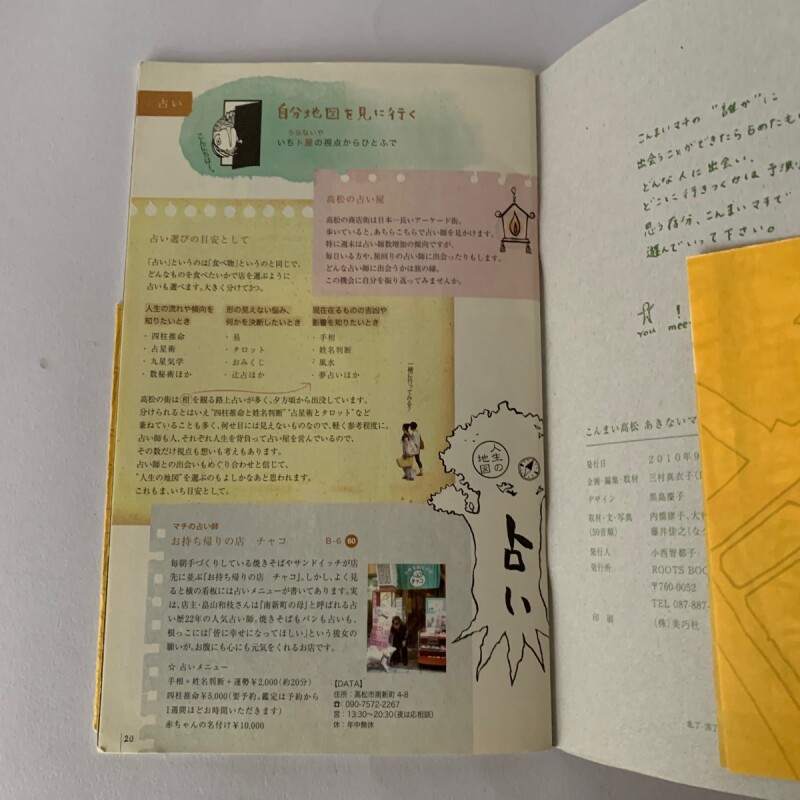 占い
自分地図を見に行く
うらないや
いち卜屋の視点からひとふで
高松の占い屋
高松の商店街は日本一長いアーケード街。
歩いていると、あちらこちらで占い師を見かけます。
特に週末は占い師数増加の傾向ですが、
毎日いる方や、旅回りの占い師に出会ったりもします。
どんな占い師に出会うかは旅の縁。
この機会に自分を振り返ってみませんか。
占い選びの目安として
「占い」というのは「食べ物」というのと同じで、
どんなものを食べたいかで店を選ぶように
占いも選べます。大きく分けて3つ。
人生の流れや傾向を
知りたいとき
・四柱推命
・占星術
・九星気学
・数秘術ほか
形の見えない悩み、
何かを決断したいとき
・易
・タロット
・おみくじ
・辻占ほか
現在在るものの吉凶や
影響を知りたいとき
・手相
・姓名判断
・風水
・夢占いほか
一緒に行ってみる?
高松の街は相を観る路上占いが多く、夕方頃から出没しています。
分けられるとはいえ“四柱推命と姓名判断”“占星術とタロット”など
兼ねていることも多く、何せ目には見えないものなので、軽く参考程度に。
占い師も人、それぞれ人生を背負って占い屋を営んでいるので、
その数だけ視点も想いも考えもあります。
占い師との出会いもめぐり合わせと信じて、
“人生の地図”を選ぶのもよしかなあと思われます。
これもま、いち目安として。
人生の
地図
占い
マチの占い師
お持ち帰りの店 チャコ B-6 60
毎朝手づくりしている焼きそばやサンドイッチが店
先に並ぶ『お持ち帰りの店 チャコ』。しかし、よく見
ると横の看板には占いメニューが書いてあります。実
は、店主・畠山和枝さんは『南新町の母』と呼ばれる占
い歴22年の人気占い師。焼きそばもパンも占いも、
根っこには「皆に幸せになってほしい」という彼女の
願いが。お腹にも心にも元気をくれるお店です。
☆ 占いメニュー
手相+姓名判断+運勢¥2,000(約20分)
四柱推命¥5,000(要予約。鑑定は予約から
1週間ほどお時間いただきます)
赤ちゃんの名付け¥10,000
チャコ
【DATA】
住所:高松市南新町4-8
☎:090-7572-2267
営:13:30~20:30(夜は応相談)
休:年中無休
20
こんまいマチの“誰か”に
出会うことができたら占めたも
どんな人に出会い、
どこに行きつくかは予測
思う存分、こんまいマチで
遊んでいって下さい。
!
you mee
こんまい高松 あきないマ
発行日 2010年9
企画・編集・取材 三村真衣子
デザイン 黒島慶子
取材・文・写真 内橋康子、大
(50音順) 藤井佳之(な
発行人 小西智都子
発行所 ROOTS BOO
〒760-0052
TEL 087-887-
印刷 (株)美巧社
乱丁・落丁